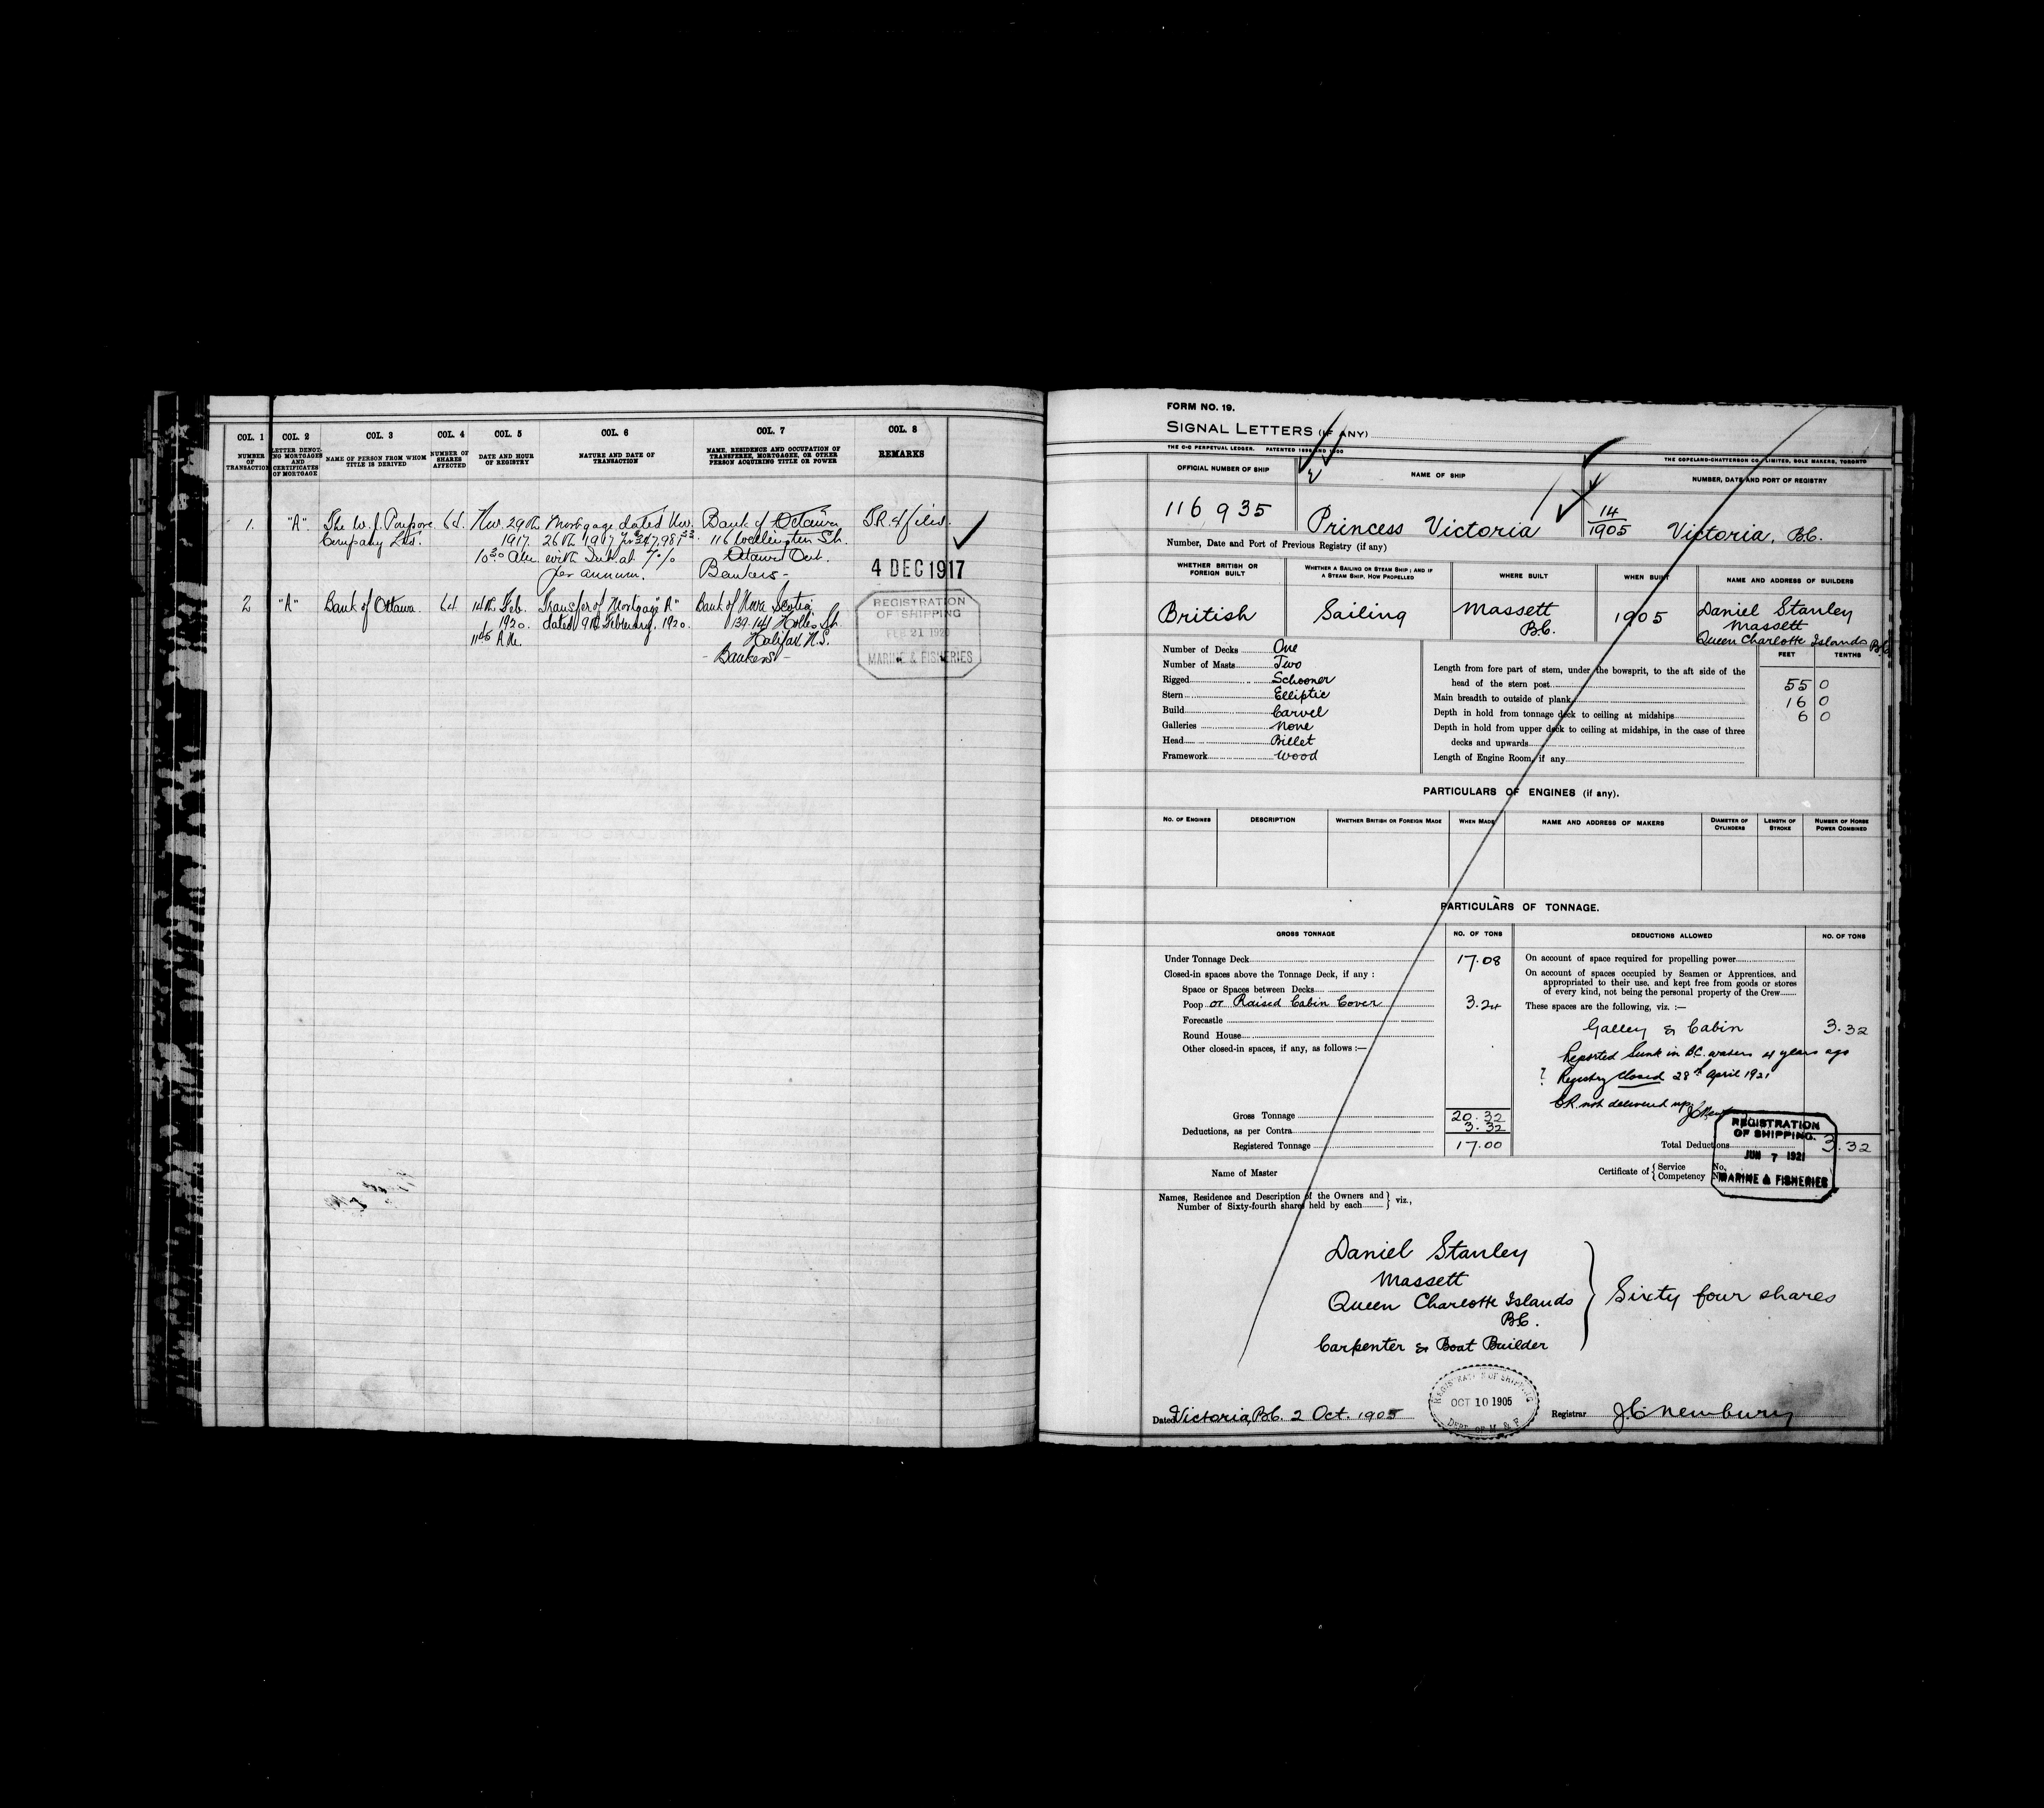 COL. 1 COL. 2 COL. 3 COL. 4 COL. 5 COL. 6 COL. 7 COL. 8
NUMBER OF TRANSACTION
LETTER DENOTING MORTGAGES AND CERTIFICATES OF MORTGAGE
NAME OF PERSON FROM WHOM TITLE IS DERIVED
NUMBER OF SHARES AFFECTED
DATE AND HOUR OF REGISTRY
NATURE AND DATE OF TRANSACTION
NAME, RESIDENCE AND OCCUPATION OF TRANSFEREE, MORTGAGEE, OR OTHER PERSON ACQUIRING TITLE OR POWER
REMARKS
1. "A". The W. J. Poupore 64. Nov. 29th Mortgage dated Nov. Bank of Ottawa
Company Ltd. 1917. 26th 1917 for 116 Wellington St.
10 30 AM. with Int. at 7% Ottawa Ont.
per annum. Bankers -
4 DEC 1917
2 "A" Bank of Ottawa. 64 14th Feb. Transfer of Mortgage "A" Bank of Nova Scotia
1920. dated 9th February, 1920. 139-141 Hollis St.
A.M. Halifax N.S.
- Bankers -
REGISTRATION
OF SHIPPING
FEB 21 1920
MARINE & FISHERIES
FORM NO. 19.
SIGNAL LETTERS (IF ANY)
THE C-C PERPETUAL LEDGER. PATENTED
THE COPELAND-CHATTERSON CO., LIMITED, SOLE MAKERS, TORONTO
OFFICIAL NUMBER OF SHIP NAME OF SHIP NUMBER, DATE AND PORT OF REGISTRY
116935 Princess Victoria 14/1905 Victoria, B.C.
Number, Date and Port of Previous Registry (if any)
WHETHER BRITISH OR FOREIGN BUILT
WHETHER A SAILING OR STEAM SHIP; AND IF A STEAM SHIP, HOW PROPELLED
WHERE BUILT
WHEN BUILT
NAME AND ADDRESS OF BUILDERS
British Sailing Massett 1905 Daniel Stanley
B.C. Massett
Queen Charlotte Islands B.C.
FEET TENTHS
Number of Decks One
Number of Masts Two
Rigged Schooner
Stern Elliptic
Build Carvel
Galleries None
Head Billet
Framework Wood
Length from fore part of stem, under the bowsprit, to the aft side of the
head of the stern post 55 0
Main breadth to outside of plank 16 0
Depth in hold from tonnage deck to ceiling at midships 6 0
Depth in hold from upper deck to ceiling at midships, in the case of three
decks and upwards
Length of Engine Room, if any
PARTICULARS OF ENGINES (if any).
NO. OF ENGINES DESCRIPTION WHETHER BRITISH OR FOREIGN MADE WHEN MADE NAME AND ADDRESS OF MAKERS DIAMETER OF CYLINDERS LENGTH OF STROKE NUMBER OF HORSE POWER COMBINED
PARTICULARS OF TONNAGE.
GROSS TONNAGE NO. OF TONS DEDUCTIONS ALLOWED NO. OF TONS
Under Tonnage Deck 17.08
Closed-in spaces above the Tonnage Deck, if any :
Space or Spaces between Decks
Poop or Raised Cabin Cover 3.24
Forecastle
Round House
Other closed-in spaces, if any, as follows :—
Gross Tonnage 20.32
Deductions, as per Contra 3.32
Registered Tonnage 17.00
On account of space required for propelling power
On account of spaces occupied by Seamen or Apprentices, and
appropriated to their use, and kept free from goods or stores
of every kind, not being the personal property of the Crew
These spaces are the following, viz. :—
Galley & Cabin 3.32
Reported Sunk in B.C. waters 4 years ago
? Registry closed 28th April 1921
C.R. not delivered up
Total Deductions 3.32
REGISTRATION
OF SHIPPING.
JUN 7 1921
MARINE & FISHERIES
Name of Master
Certificate of { Service No.
Competency No.
Names, Residence and Description of the Owners and } viz.,
Number of Sixty-fourth shares held by each
Daniel Stanley
Massett
Queen Charlotte Islands
B.C.
Carpenter & Boat Builder
Sixty four shares
Dated Victoria, B.C. 2 Oct. 1905
REGISTRATION OF SHIPPING
OCT 10 1905
DEPT. OF M. & F.
Registrar J.C. Newbury